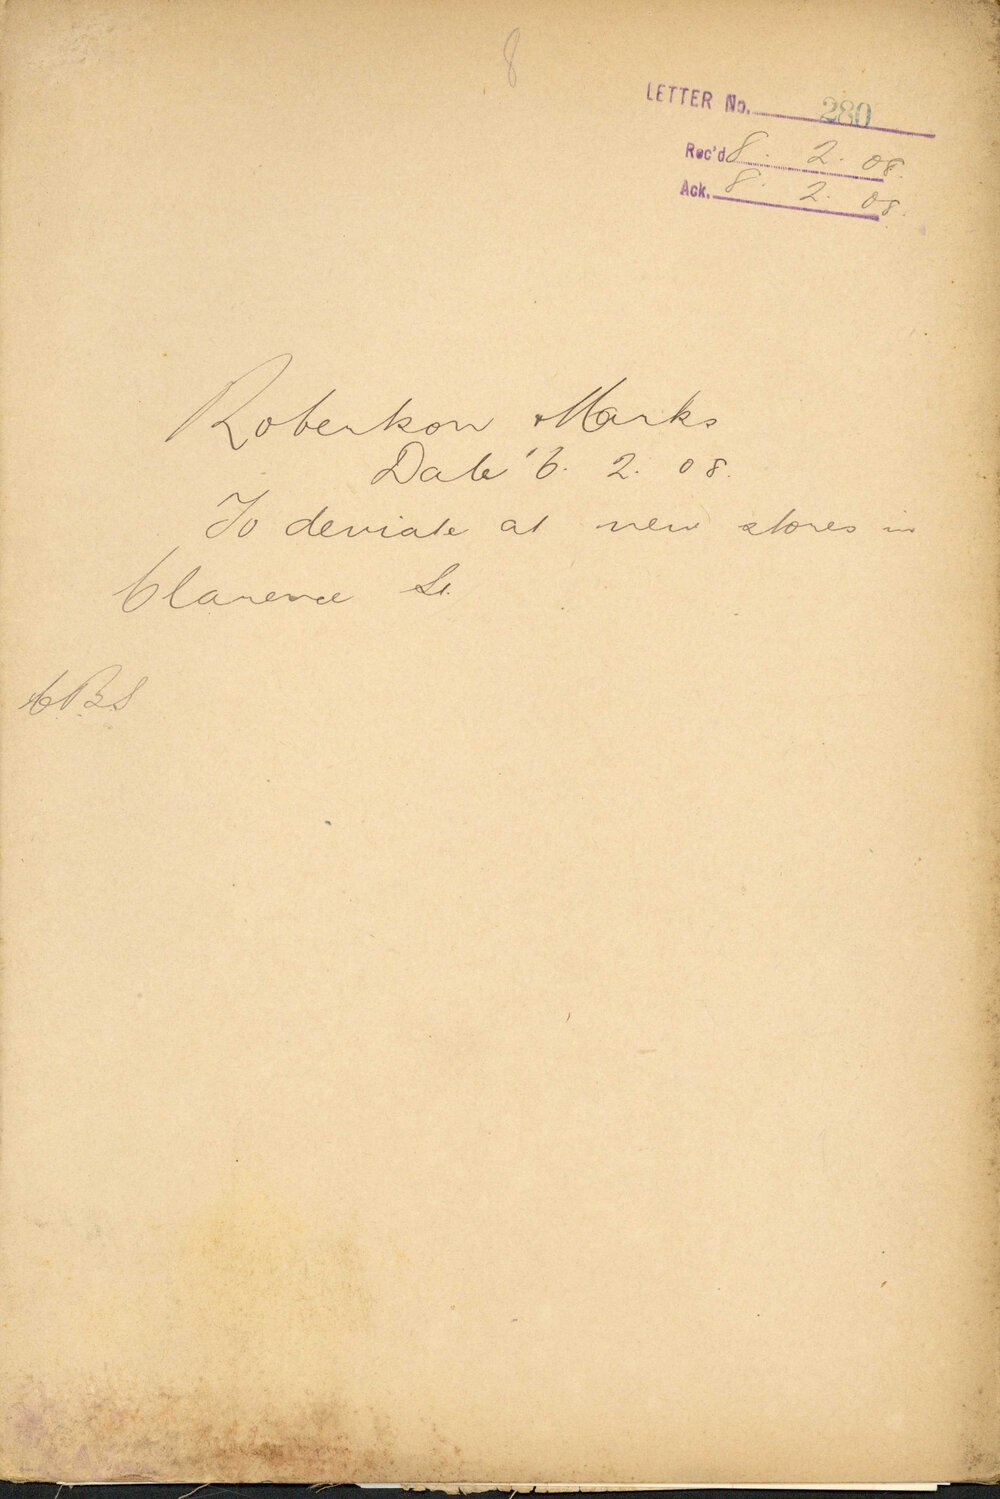 8
LETTER No. 280
Rec'd 8. 2. 08.
Ack. 8. 2. 08.
Robertson & Marks
Date 6. 2. 08.
To deviate at new stores in
Clarence St.
CBS